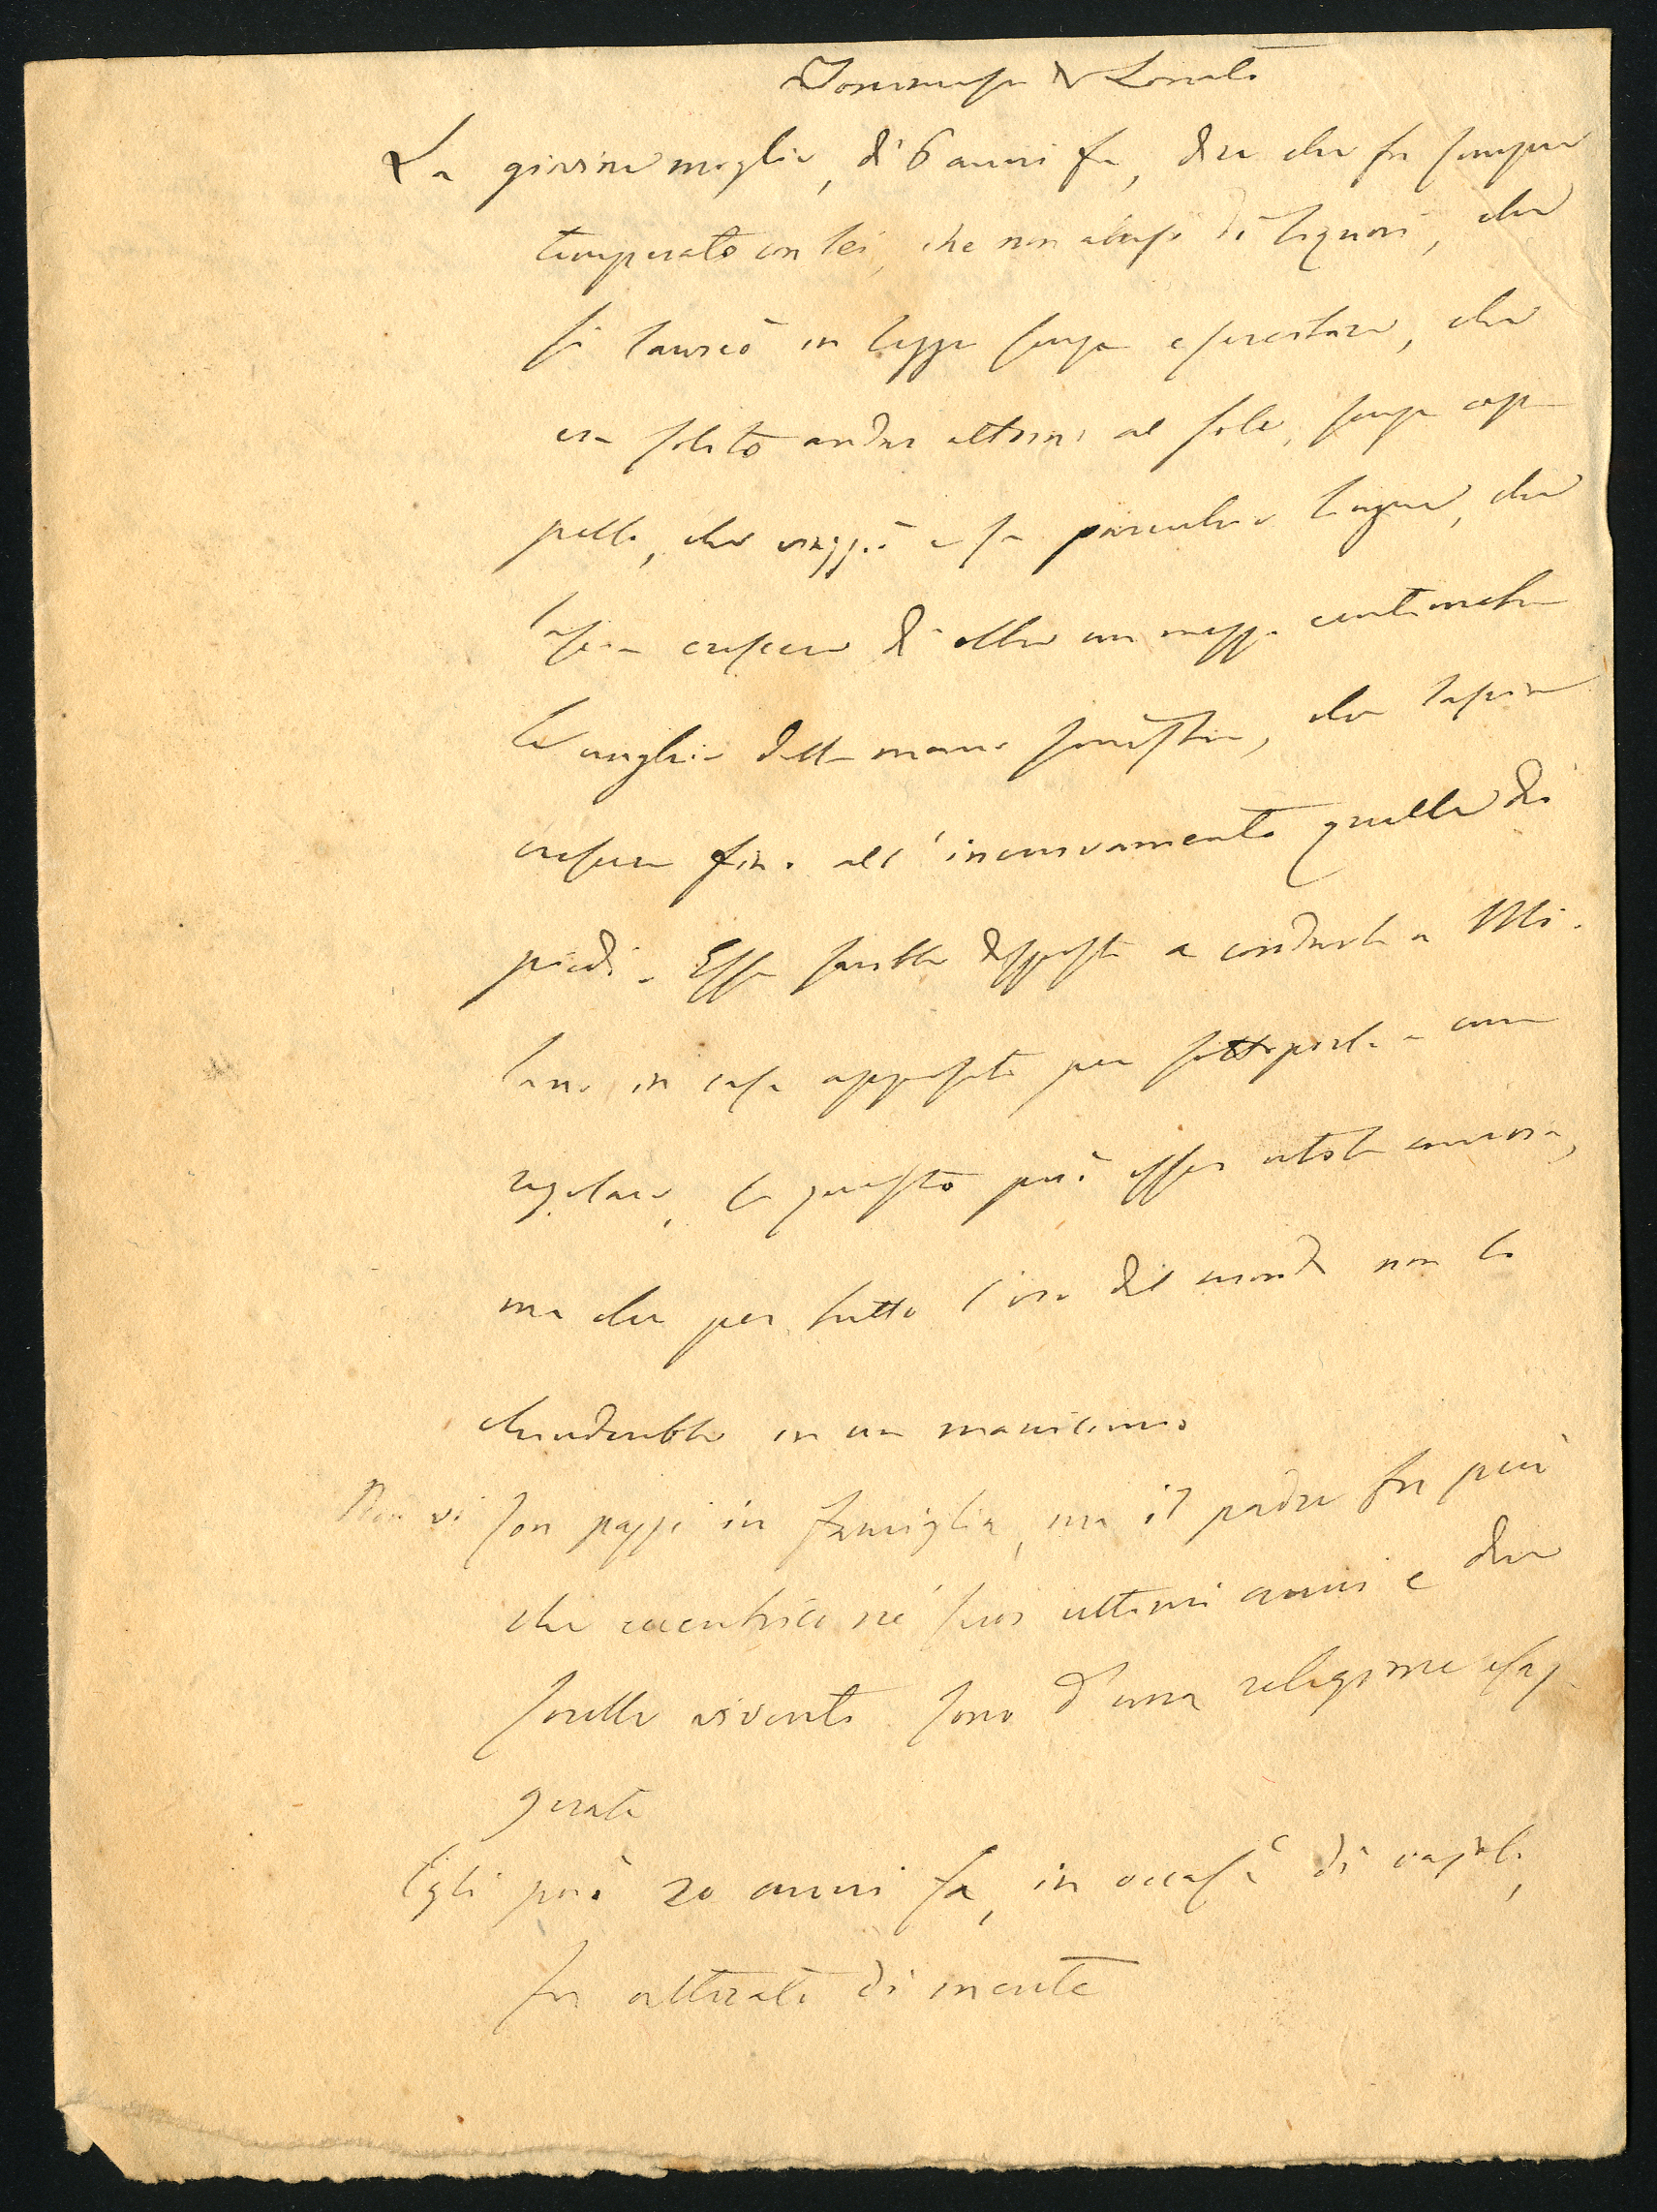 Tommaso di Lonato
La giovine moglie, di 6 anni fa, dice che fu sempre
temperato con lei, che non abusò di liquori, che
si laureò in legge senza esercitare, che
era solito andar attorno al sole, senza cap
pello, che viaggiò e sa parecchie lingue, che
lascia crescere di oltre un mezzo centimetro
le unghie della mano sinistra, che lascia
crescere fino all'incurvamento quelle dei
piedi. Essa sarebbe disposta a condurlo a Mi-
lano in casa apposita per sottoporlo a cura
regolare, se questo può esser utile ancora,
ma che per tutto l'oro del mondo non lo
chiuderebbe in un manicomio
Non vi son pazzi in famiglia, ma il padre fu più
che eccentrico ne' suoi ultimi anni e due
sorelle viventi sono d'una religione esag-
gerata
Egli però 20 anni fa, in occasᵉ di vajolo,
fu alterato di mente